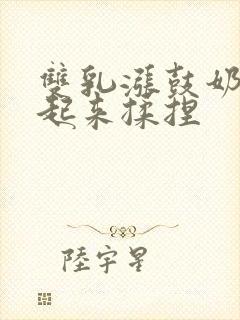 雙乳漲鼓奶
起來揉捏
陸宇星